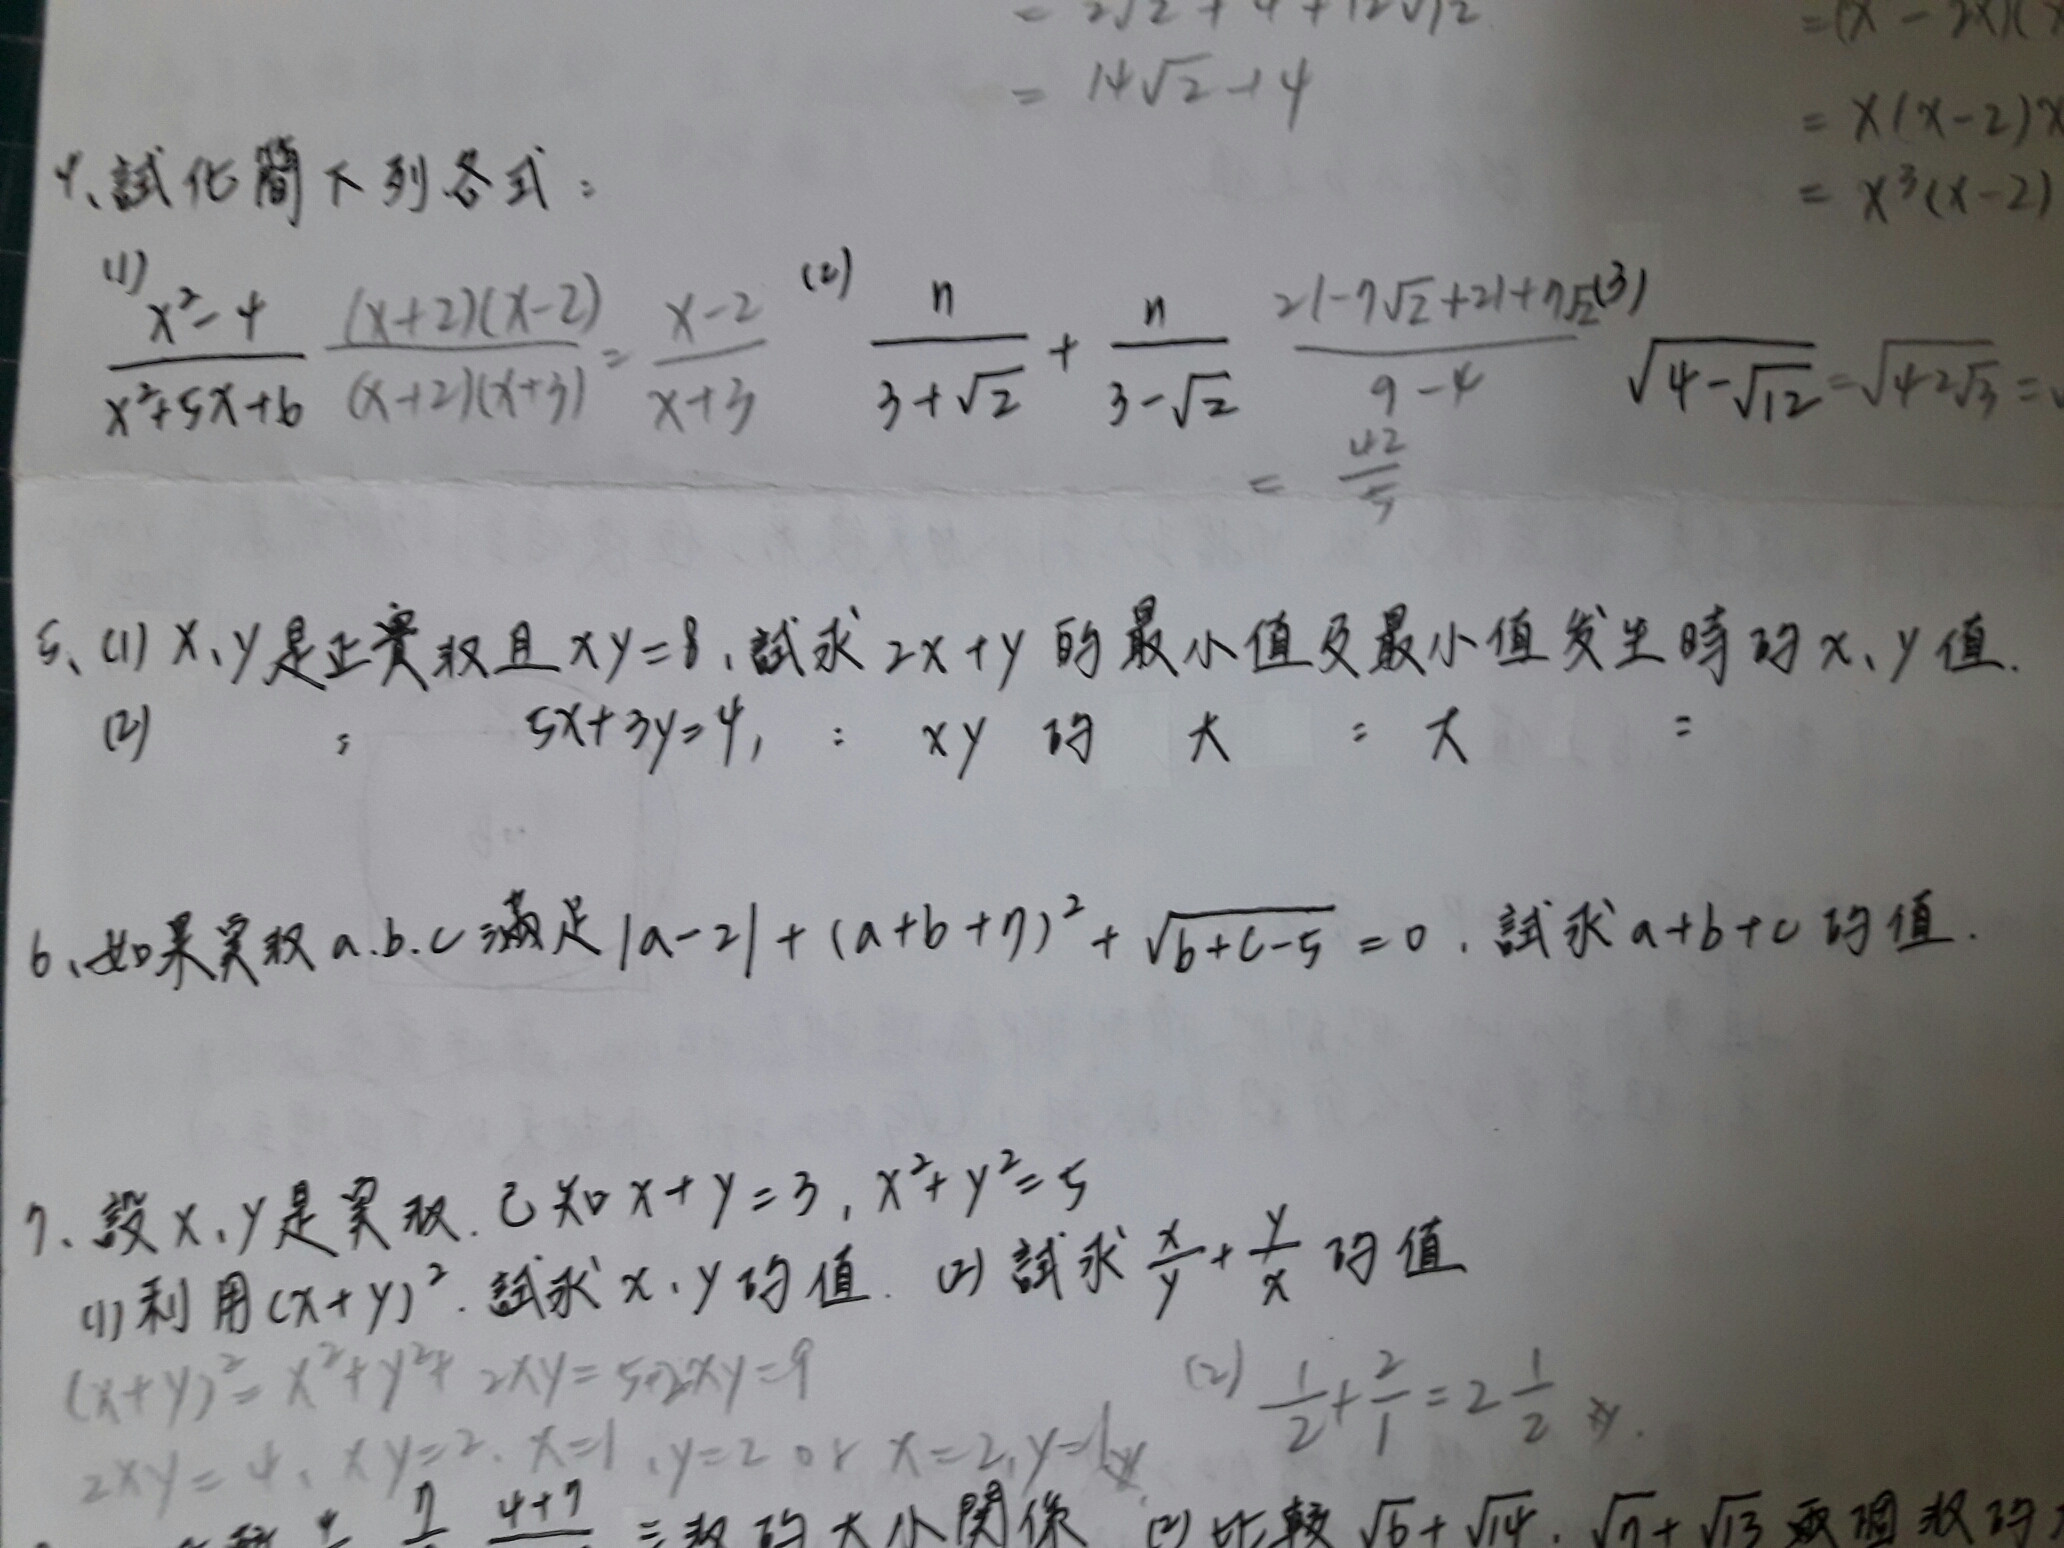 = 2√2 + 4 + 12√2
= 14√2 + 4
= x(x-2)x
= x³(x-2)
4、試化簡下列各式：
(1) x²-4/x²+5x+6 (x+2)(x-2)/(x+2)(x+3) = x-2/x+3 (2) 7/3+√2 + 7/3-√2 21-7√2+21+7√2/9-4 (3) √4-√12 = √4-2√3 =
= 42/5
5、(1) x、y是正實数且xy=8、試求2x+y的最小值及最小值发生時的x、y值.
(2) : 5x+3y=4, : xy 的 大 : 大 =
6、如果実数a.b.c滿足|a-2|+(a+b+7)²+√b+c-5=0、試求a+b+c的值.
7、設x、y是実数.已知x+y=3,x²+y²=5
(1)利用(x+y)².試求x、y的值. (2)試求x/y+y/x的值
(x+y)²=x²+y²+2xy=5+2xy=9
2xy=4、xy=2、x=1,y=2 or x=2,y=1
(2) 1/2+2/1=2 1/2
4+7 三数的大小関係 (2)比較√6+√14、√7+√13両個数的